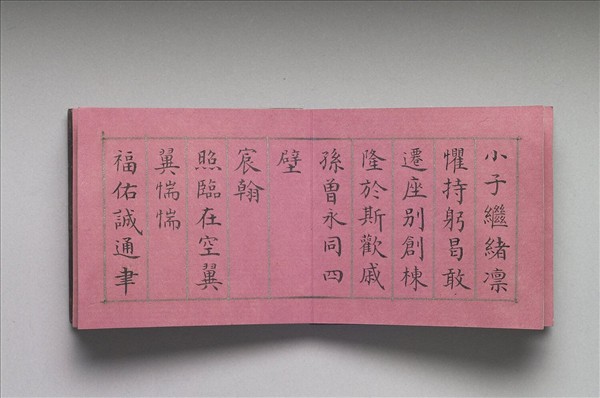 小子繼緒凛
懼持躬曷敢
遷座別創棟
隆於斯歡戚
孫曾永同四
壁
宸翰
照臨在空翼
翼惴惴
福佑誠通聿